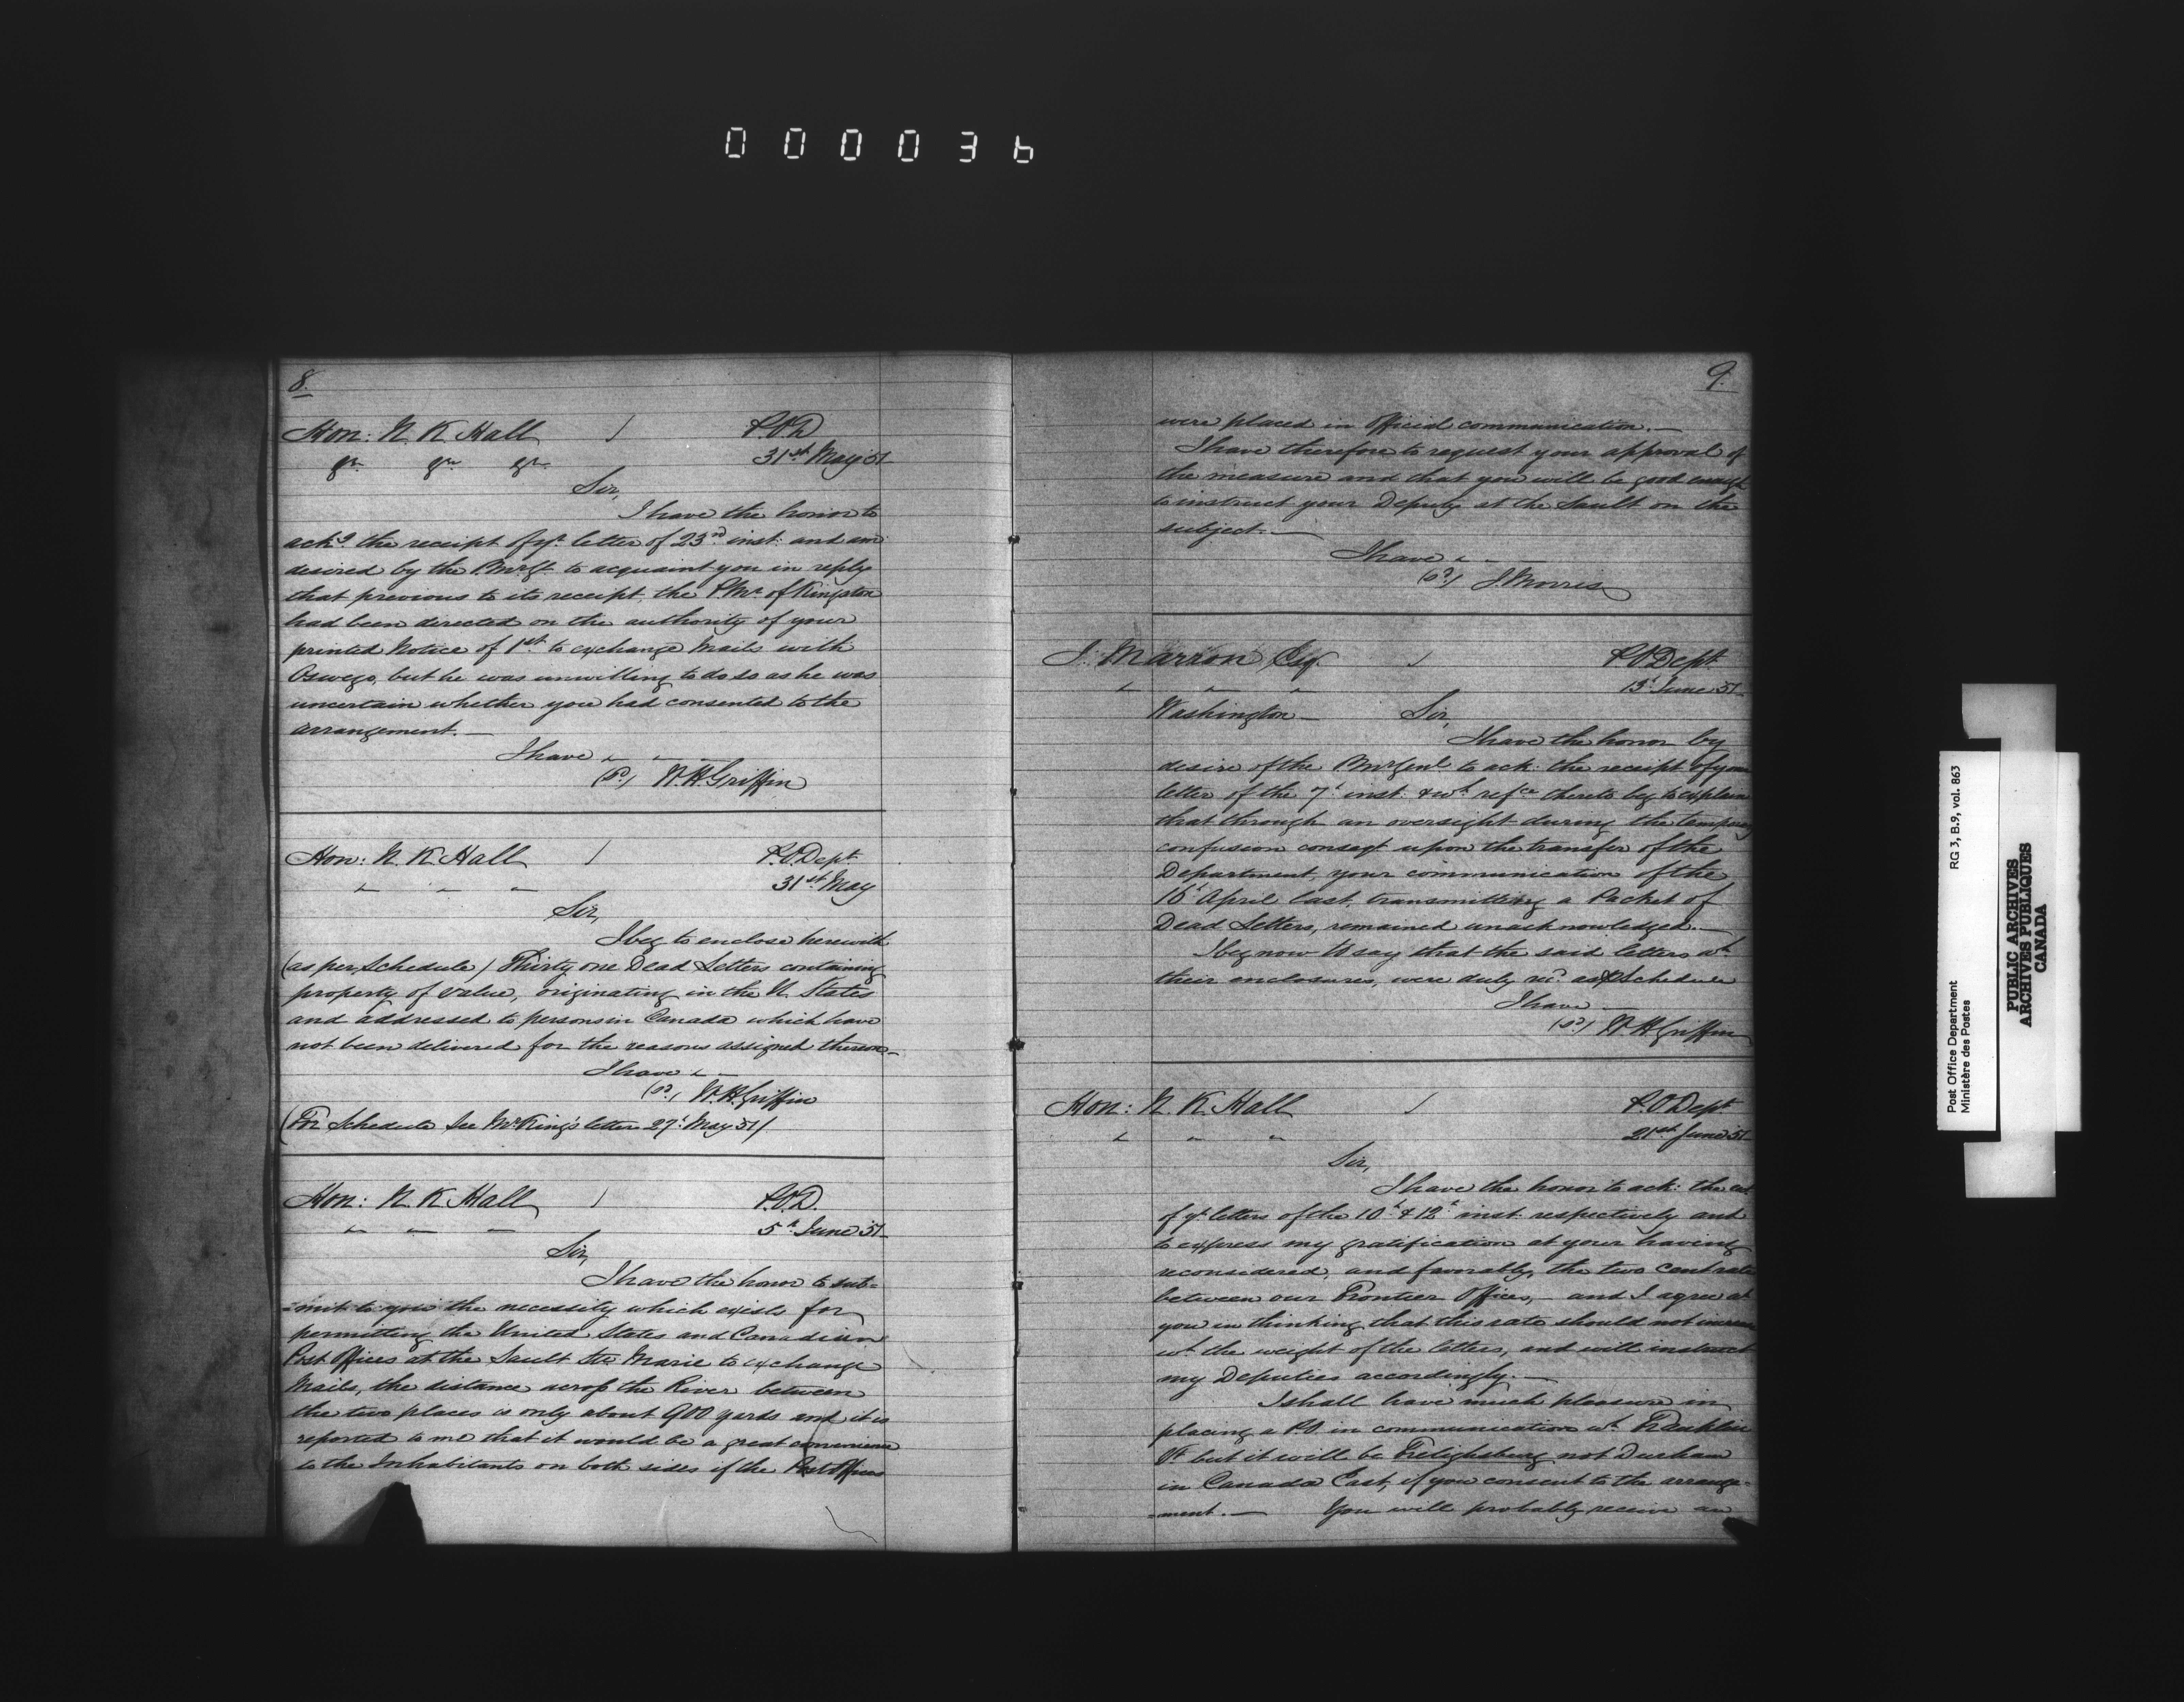 000036
8.
Hon: N. K. Hall / P.O.D
&c &c &c 31st May 51
Sir,
I have the honor to
ackd. the receipt of yr. letter of 23rd inst: and am
desired by the P.MrGl. to acquaint you in reply
that previous to its receipt, the P.Mr. of Kingston
had been directed on the authority of your
printed Notice of 1st to exchange Mails with
Oswego, but he was unwilling to do so as he was
uncertain whether you had consented to the
arrangement. —
I have " - -
(sd.) W. H. Griffin
Hon: N. K. Hall / P.O. Dept.
" " " 31st May
Sir,
I beg to enclose herewith
(as per Schedule) Thirty one Dead Letters containing
property of value, originating in the U. States
and addressed to persons in Canada which have
not been delivered for the reasons assigned thereon—
I have " -
(sd.) W. H. Griffin
(For Schedule See Mr. King's letter 27th May 51)
Hon: N. K. Hall / P.O.D.
" " " 5th June 51
Sir,
I have the honor to sub=
=mit to you the necessity which exists for
permitting the United States and Canadian
Post Offices at the Sault Ste Marie to exchange
Mails, the distance across the River between
the two places is only about 900 yards and it is
reported to me that it would be a great convenience
to the Inhabitants on both sides if the Post Offices
9.
were placed in Official communication. —
I have therefore to request your approval of
the measure and that you will be good enough
to instruct your Deputy at the Sault on the
subject. —
I have " -
(sd.) J. Morris
J. Marron Esq. / P.O Dept.
" " " 13th June 51
Washington — Sir,
I have the honor by
desire of the P.MrGenl. to ack: the receipt of your
letter of the 7th inst: & wh. refce thereto beg to explain
that through an oversight during the temporary
confusion conseqt upon the transfer of the
Department, your communication of the
16th April last, transmitting a Packet of
Dead Letters, remained unacknowledged. —
I beg now to say that the said letters wh.
their enclosures, were duly recd. as pr Schedule
I have —
(sd.) W. H. Griffin
Hon: N. K. Hall / P.O Dept
" " " 21st June 51
Sir,
I have the honor to ack: the
of yr. letters of the 10th & 12th inst. respectively and
to express my gratification at your having
reconsidered, and favorably, the two cent rate
between our Frontier Offices, — and I agree wh
you in thinking that this rate should not increase
wh. the weight of the letters, and will instruct
my Deputies accordingly. —
I shall have much pleasure in
placing a P.O in communication wh. Franklin
Vt. but it will be Frelighsburg not Durham
in Canada East, if you consent to the arrange-
=ment. — You will probably receive an
Post Office Department RG 3, B.9, vol. 863
Ministère des Postes
PUBLIC ARCHIVES
ARCHIVES PUBLIQUES
CANADA